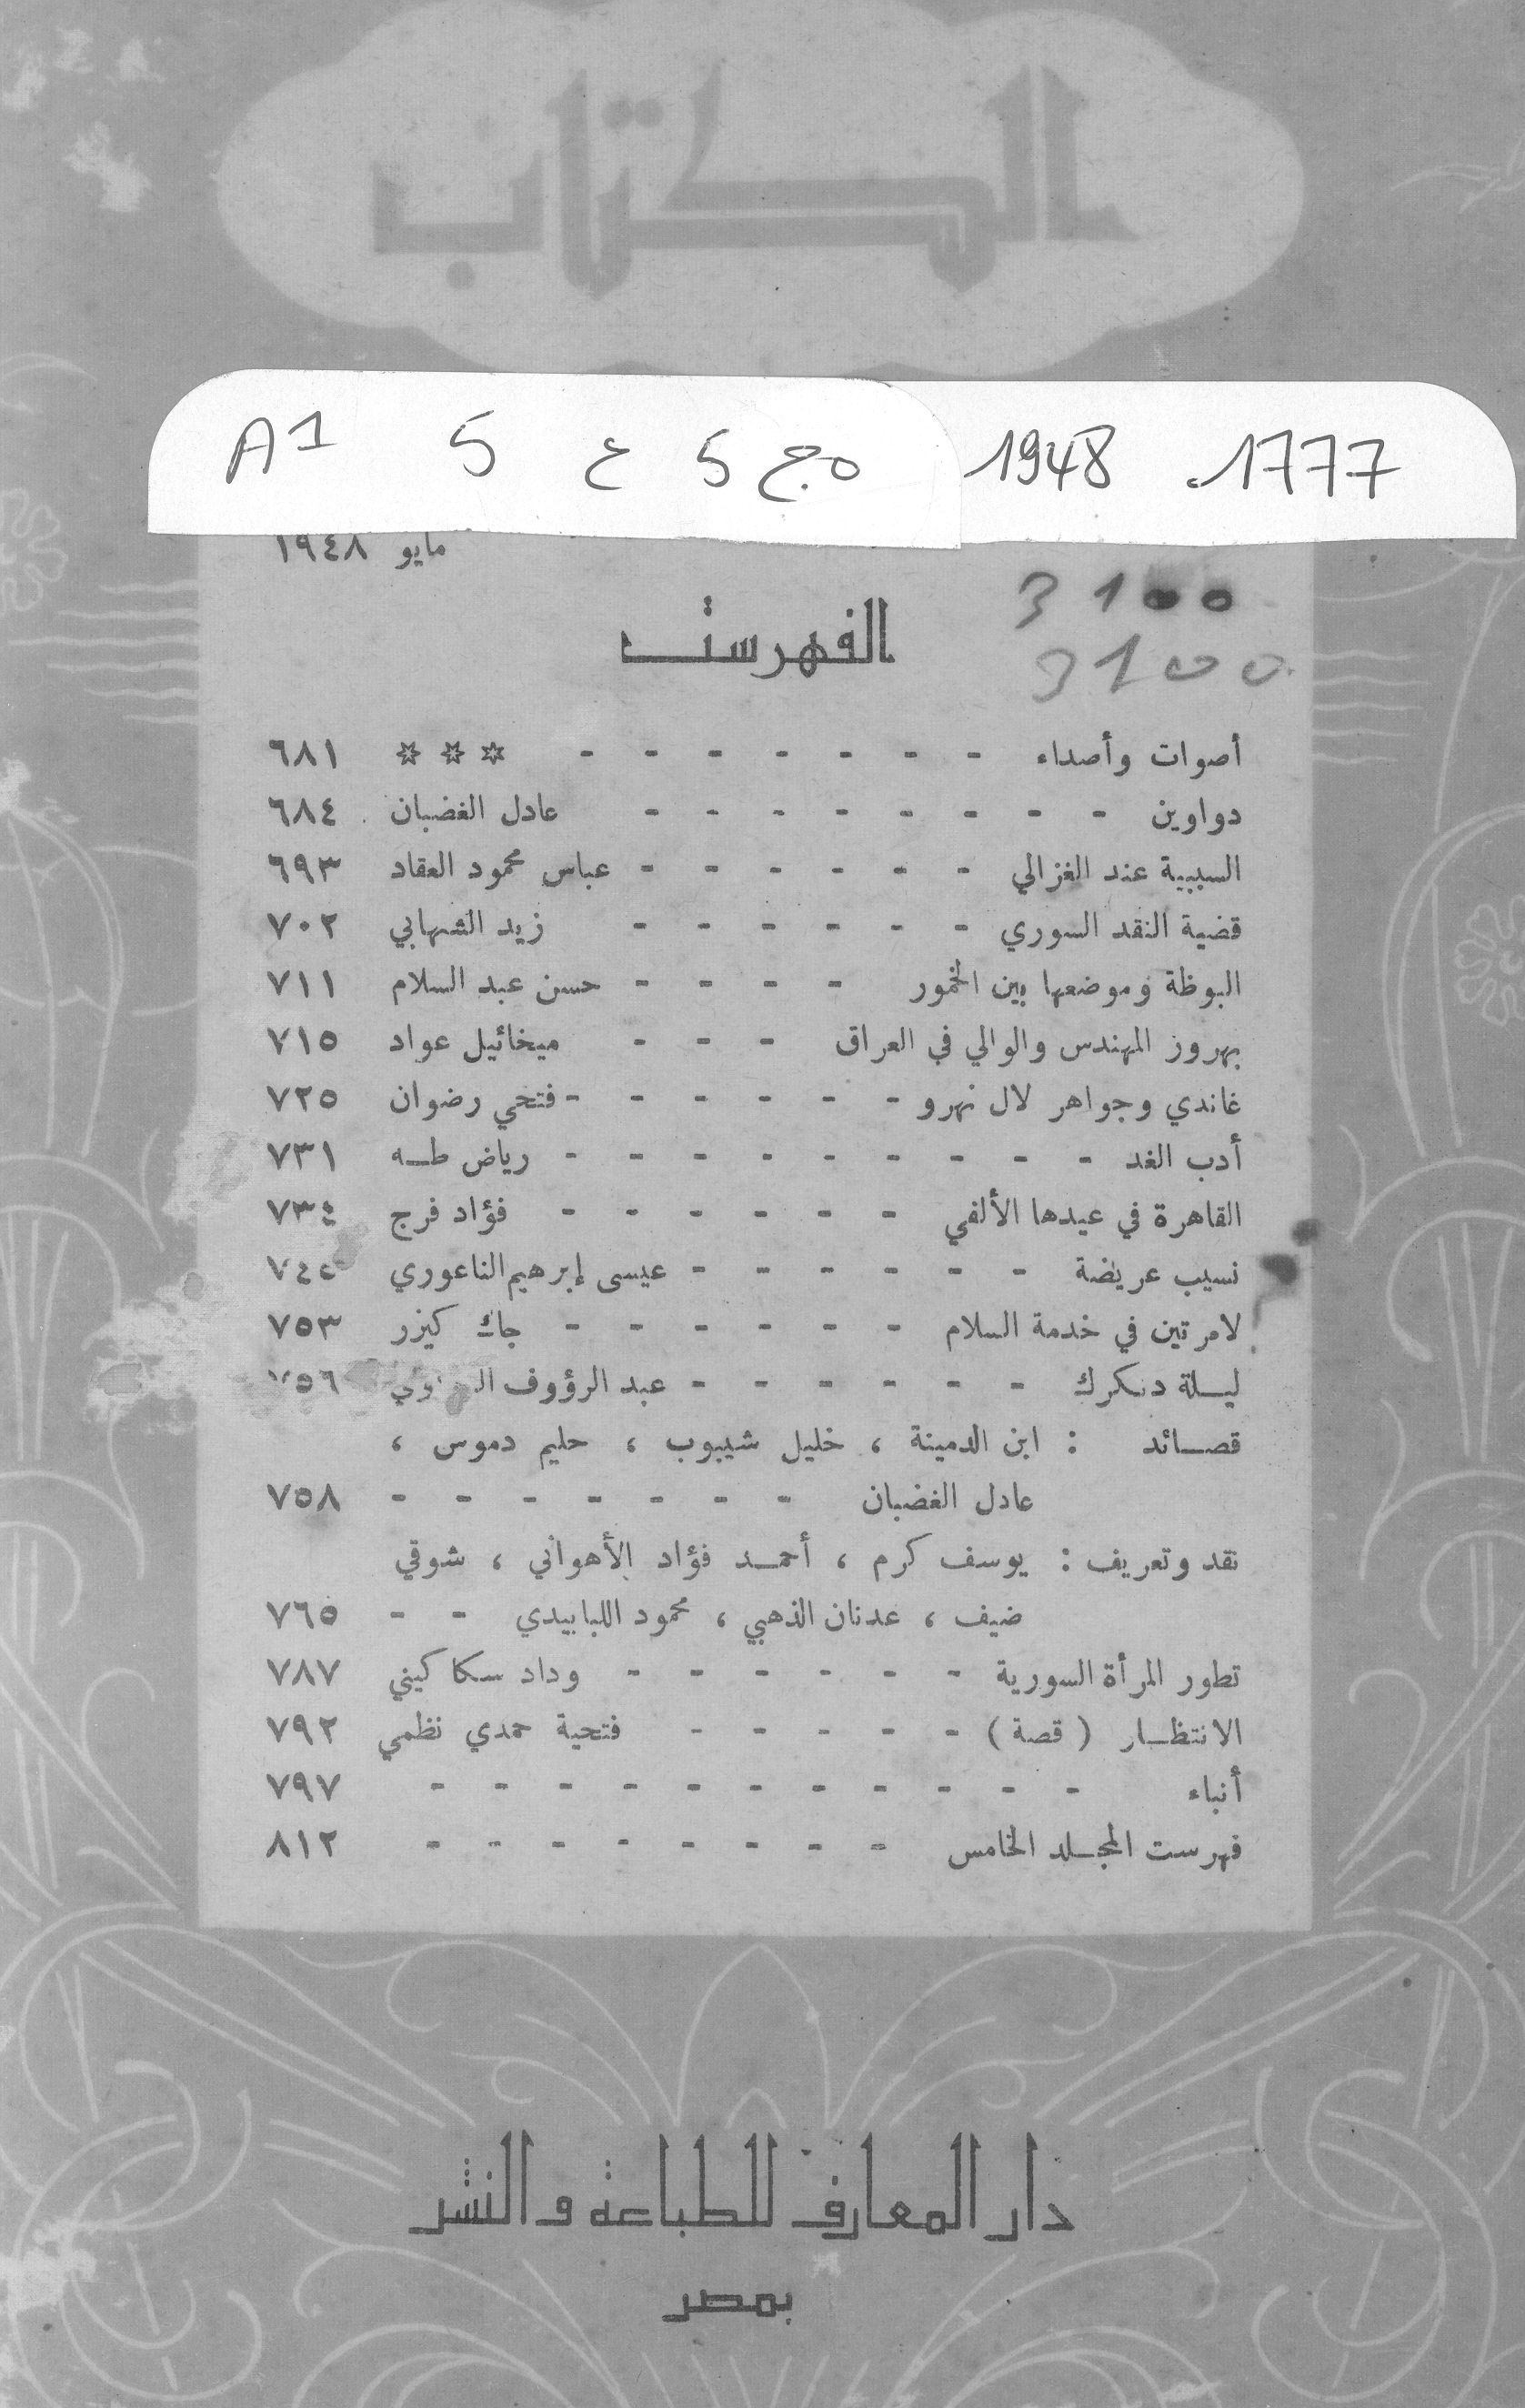 الكتاب
1777. 1948 مج 5 ع 5 A1
مايو ١٩٤٨
3100
3100
الفهرست
أصوات وأصداء - - - - - - - ☆ ☆ ☆ ٦٨١
دواوين - - - - - - - - عادل الغضبان ٦٨٤
السببية عند الغزالي - - - - - - عباس محمود العقاد ٦٩٣
قضية النقد السوري - - - - - - زيد الشهابي ٧٠٢
البوظة وموضعها بين الخمور - - - - حسن عبد السلام ٧١١
بهروز المهندس والوالي في العراق - - - ميخائيل عواد ٧١٥
غاندي وجواهر لال نهرو - - - - - - فتحي رضوان ٧٢٥
أدب الغد - - - - - - - - - رياض طه ٧٣١
القاهرة في عيدها الألفي - - - - - - فؤاد فرج ٧٣٤
نسيب عريضة - - - - - - عيسى إبرهيم الناعوري
لامرتين في خدمة السلام - - - - - - جاك كيزر ٧٥٣
ليلة دنكرك - - - - - - عبد الرؤوف ٧٥٦
قصائد : ابن الدمينة ، خليل شيبوب ، حليم دموس ،
عادل الغضبان - - - - - - - ٧٥٨
نقد وتعريف : يوسف كرم ، أحمد فؤاد الأهواني ، شوقي
ضيف ، عدنان الذهبي ، محمود اللبابيدي - - ٧٦٥
تطور المرأة السورية - - - - - - وداد سكاكيني ٧٨٧
الانتظار ( قصة ) - - - - - فتحية حمدي نظمي ٧٩٢
أنباء - - - - - - - - - - - ٧٩٧
فهرست المجلد الخامس - - - - - - - - ٨١٢
دار المعارف للطباعة والنشر
بمصر